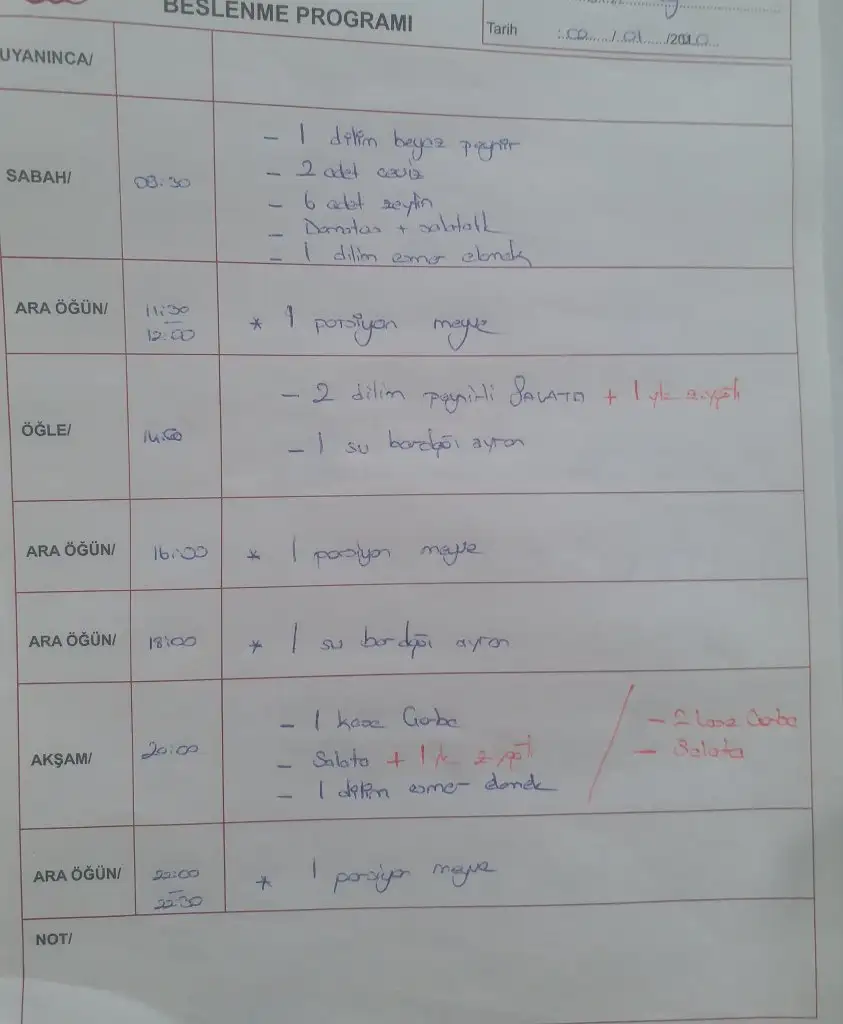 BESLENME PROGRAMI
Tarih
UYANINCA/
SABAH/ 08:30
- 1 dilim beyaz peynir
- 2 adet ceviz
- 6 adet zeytin
- Domates + salatalık
- 1 dilim esmer ekmek
ARA ÖĞÜN/ 11:30 - 12:00 * 1 porsiyon meyve
ÖĞLE/ 14:00
- 2 dilim peynirli SALATA + 1 yk z.yağlı
- 1 su bardağı ayran
ARA ÖĞÜN/ 16:00 * 1 porsiyon meyve
ARA ÖĞÜN/ 18:00 * 1 su bardağı ayran
AKŞAM/ 20:00
- 1 kase Çorba / - 2 kase Çorba
- Salata + 1 yk z.yağlı - Salata
- 1 dilim esmer ekmek
ARA ÖĞÜN/ 22:00 - 22:30 * 1 porsiyon meyve
NOT/